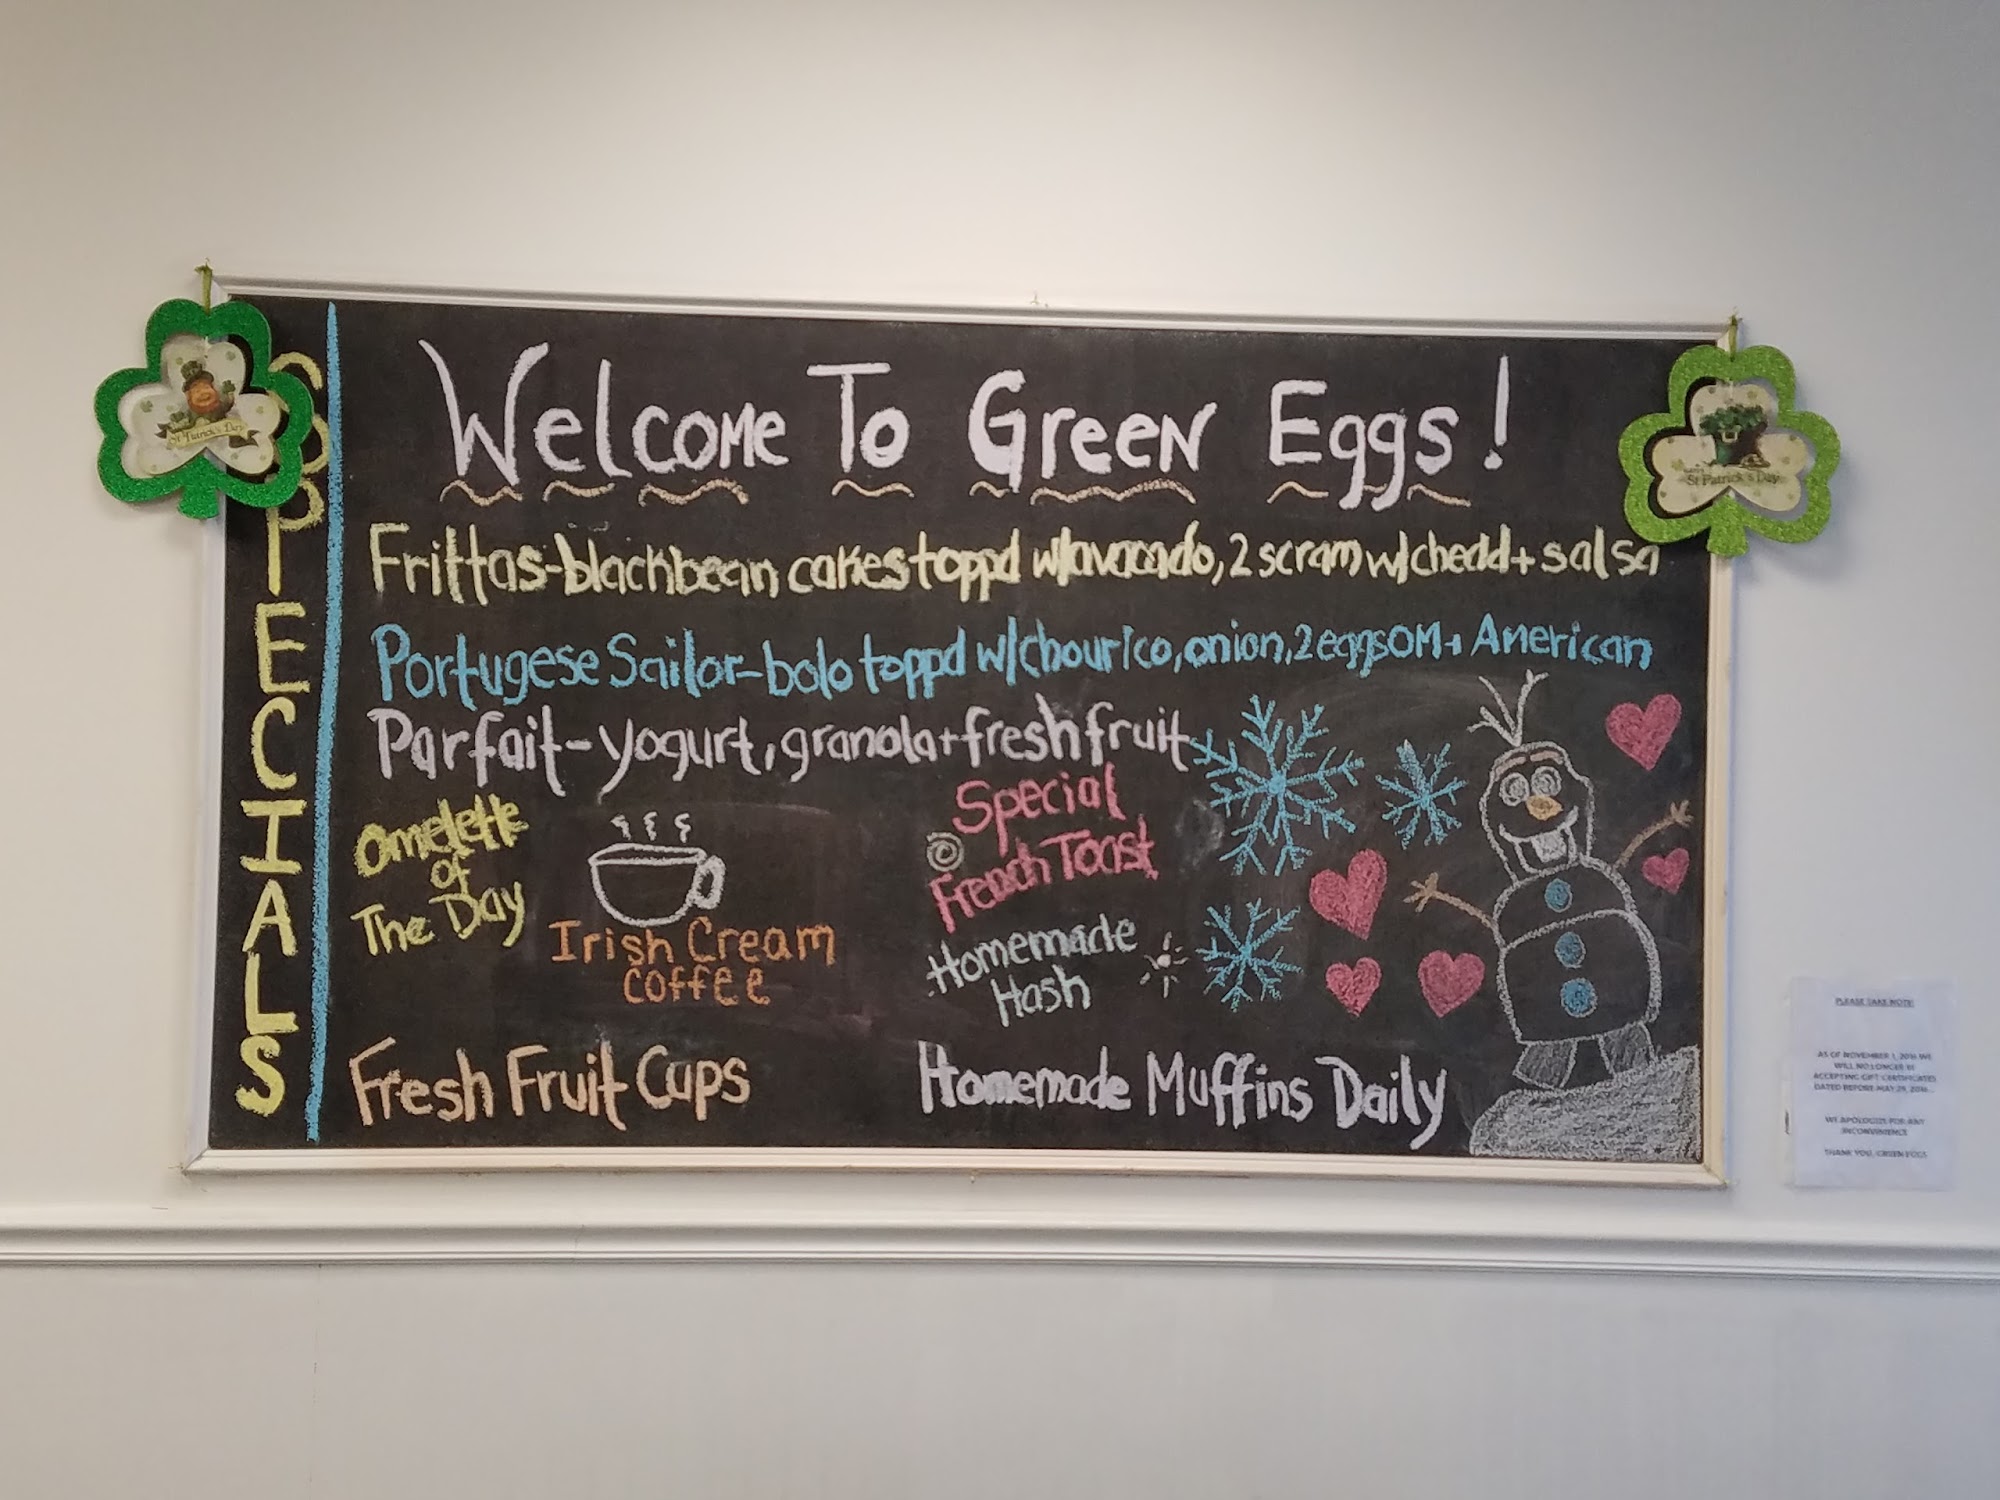 SPECIALS
Welcome To Green Eggs!
Frittas-blackbean cakes toppd w/avacado, 2 scram w/chedd + salsa
Portugese Sailor-bolo toppd w/chourico, onion, 2 eggs OM + American
Parfait-yogurt, granola + fresh fruit
Omelette
of
The Day
Irish Cream
Coffee
Special
French Toast
Homemade
Hash
Fresh Fruit Cups
Homemade Muffins Daily
St Patrick's Day
St Patrick's Day
PLEASE TAKE NOTE!
AS OF NOVEMBER 1, 2016 WE
WILL NO LONGER BE
ACCEPTING GIFT CERTIFICATES
DATED BEFORE MAY 29, 2016
WE APOLOGIZE FOR ANY
INCONVINIENCE
THANK YOU, GREEN EGGS